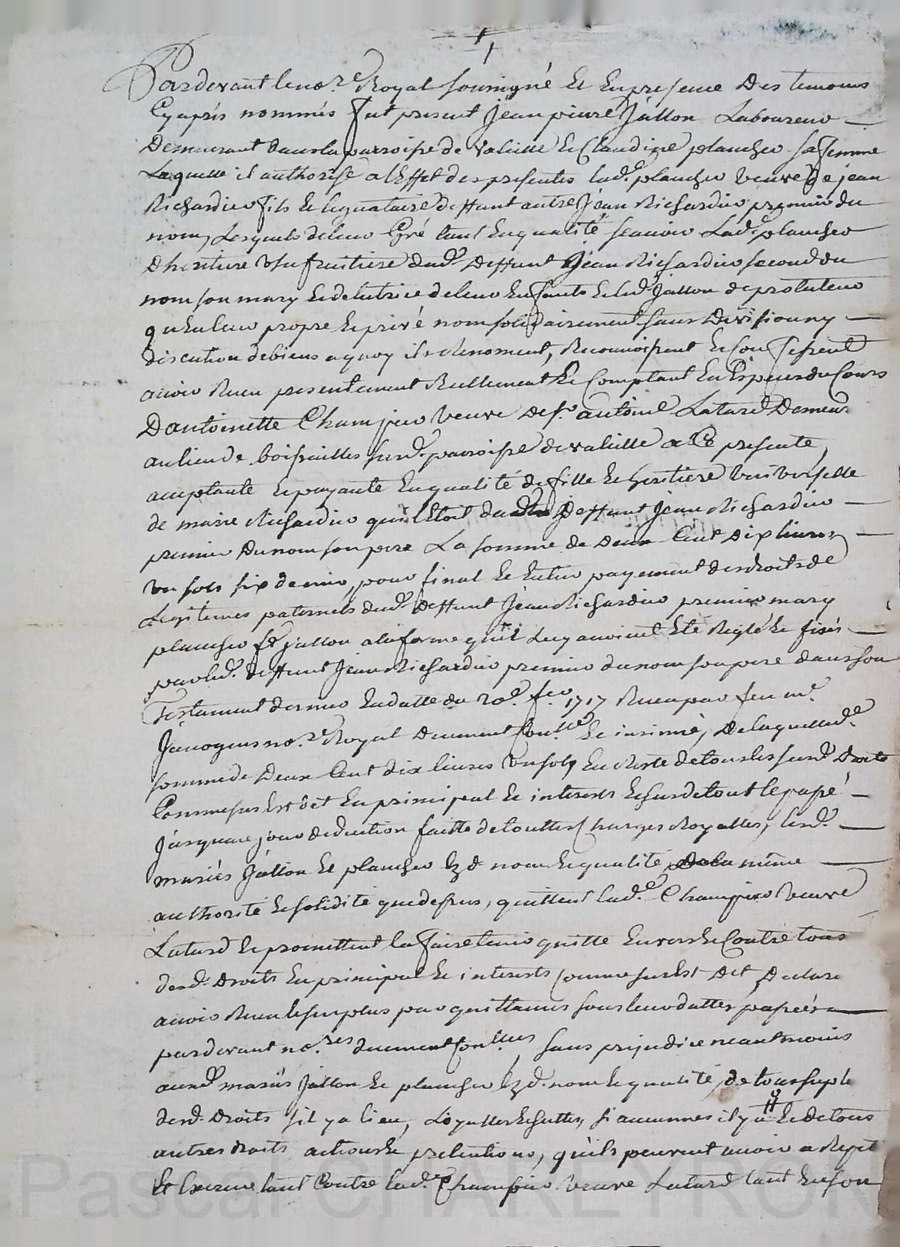 Pardevant le no.re Royal soussigné et en presence des temoins
Cy apres nommés fut present Jean pierre Jallon Laboureur
Demeurant dans la paroisse de Valielle et Claudine plancher sa femme
Laquelle il authorise a l'effet des presentes lad.e plancher veuve de jean
Richardier fils et legataire deffunt autre Jean Richardier premier du
nom, Lesquels de leur gré tant en qualité sçavoir lad.e plancher
d'heritiere usufruitiere dud. deffunt Jean Richardier second du
nom son mary et de tutrice de leur enfants et led. Jallon de protuteur
qu'en leur propre et privé nom solidairement sans division ny
discution de biens a quoy ils renoncent, Reconnoissent et confessent
avoir Receu presentement Reellement et Comptant en Especes du Cours
D'antoinette Champier veuve de f. antoine Latard Demeur
au lieu de boissailles susd. parroisse de valielle a presente
acceptante et payante en qualité de fille et heritiere universelle
de marie Richardier qui Etoit deffunt Jean Richardier
premier du nom son pere La somme de deux Cent dix livres
un sols six denier, pour final et entier payement des droits de
Legitimes paternels dud. deffunt Jean Richardier premier mary
plancher Jallon a la forme qu'il Luy avoient Eté Reglé et fixés
par led. deffunt Jean Richardier premier du nom son pere dans son
Testament dernier en datte du 20.e fev. 1717 Receu par feu m.e
no.re Royal deument et insinué, De laquelle d.e
somme de deux Cent dix livres un sols en Reste de tous les susd. droits
Comme sus Est dit En principal et interests et sur de tout le passé
jusqu'au jour deduction faitte de touttes charges Royalles, lesd.
mariés Jallon et plancher ezd. nom et qualité, de la même
authorité et solidité que dessus, quittent lad.e Champier veuve
Latard et promettent la faire tenir quitte envers et Contre tous
desd. droits En principal et interests comme sus Est dit, Declare
avoir Receu le surplus par quittances sous leur dattes passées
pardevant no.res deument con.lles sans prejudice neantmoins
auxd. mariés Jallon et plancher ezd. nom et qualité, de tous suple
desd. droits s'il y a lieu, si aucunes il y a et de tous
autres droits actions et pretentions, qu'ils peuvent avoir
et Exercer tant Contre lad.e Champier veuve Latard tant en son
Pascal CHAREYRON